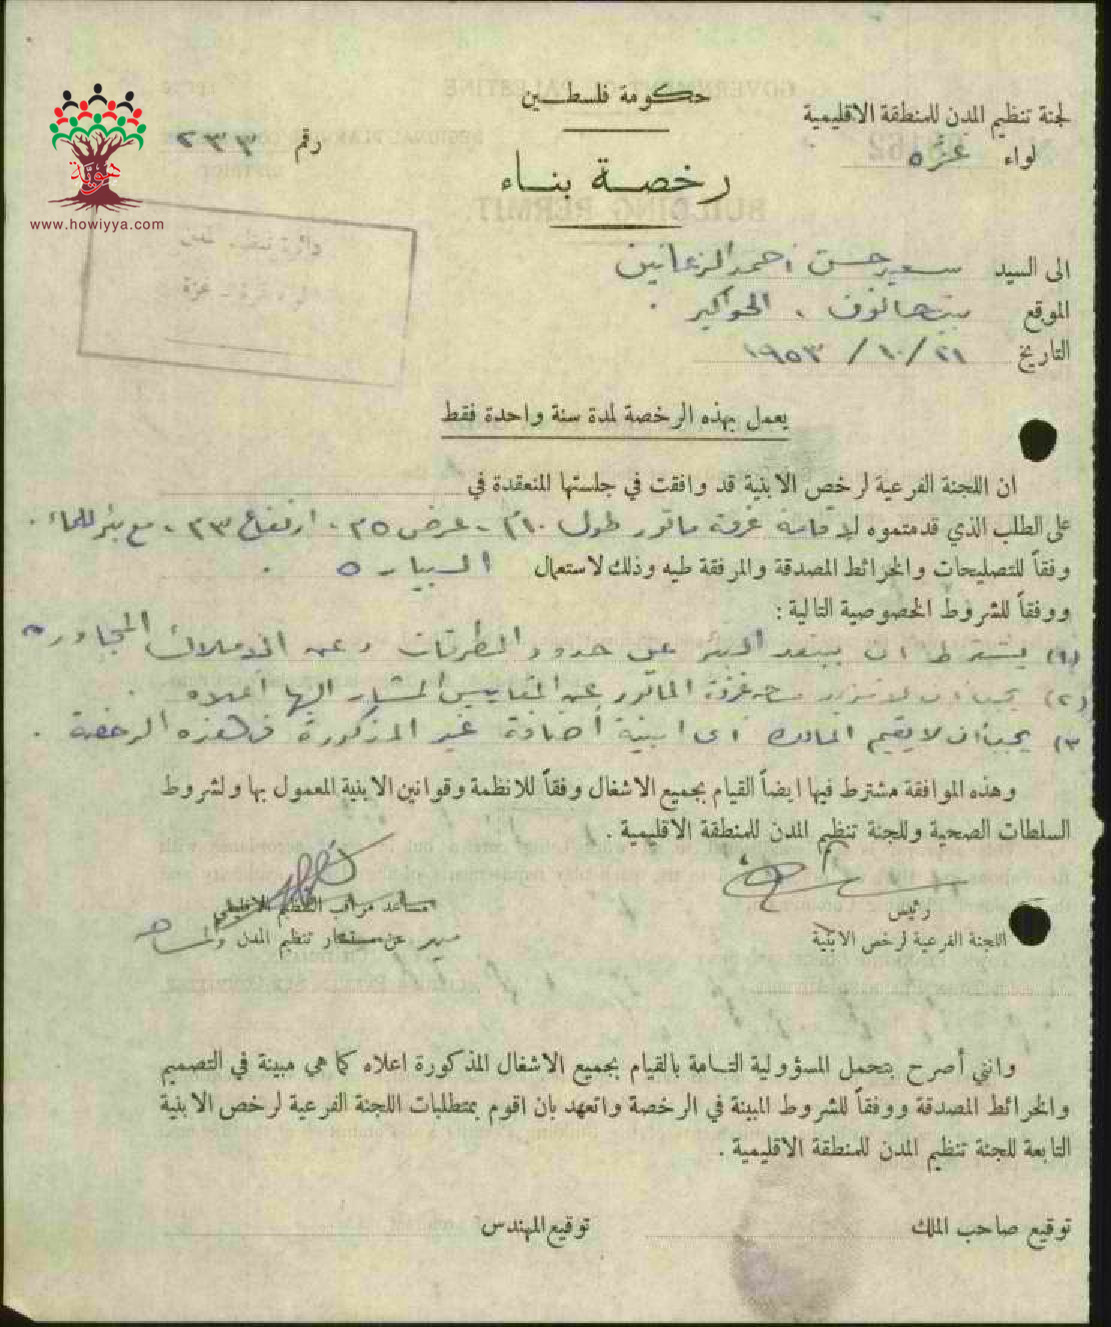 حكومة فلسطين
لجنة تنظيم المدن للمنطقة الاقليمية
لواء غزه
رقم ٢٣٣
هوية
www.howiyya.com
رخصة بناء
BUILDING PERMIT
دائرة تنظيم المدن
لواء غزة - غزة
الى السيد سعيد حسن احمد الزعانين
الموقع بيت حانون ، الحواكير .
التاريخ ٢١/ ١٠/ ١٩٥٣
يعمل بهذه الرخصة لمدة سنة واحدة فقط
ان اللجنة الفرعية لرخص الابنية قد وافقت في جلستها المنعقدة في
على الطلب الذي قدمتموه لاقامة غرفة ماتور طول عرض ارتفاع مع بئر للماء .
وفقاً للتصليحات والخرائط المصدقة والمرفقة طيه وذلك لاستعمال البياره .
ووفقاً للشروط الخصوصية التالية :
(١) يشترط ان يبتعد البئر عن حدود الطرقات وعن الاملاك المجاوره
(٢) يجب ان لا تزيد غرفة الماتور عن المقاييس المشار اليها اعلاه .
(٣ يجب ان لا يقيم المالك اى ابنية اضافة غير المذكورة في هذه الرخصة .
وهذه الموافقة مشترط فيها ايضاً القيام بجميع الاشغال وفقاً للانظمة وقوانين الابنية المعمول بها ولشروط
السلطات الصحية وللجنة تنظيم المدن للمنطقة الاقليمية .
رئيس
اللجنة الفرعية لرخص الابنية
مساعد مراقب التنظيم الاقليمي
عن مستشار تنظيم المدن
وانني أصرح بتحمل المسؤولية التامة بالقيام بجميع الاشغال المذكورة اعلاه كما هي مبينة في التصميم
والخرائط المصدقة ووفقاً للشروط المبينة في الرخصة واتعهد بان اقوم بمتطلبات اللجنة الفرعية لرخص الابنية
التابعة للجنة تنظيم المدن للمنطقة الاقليمية .
توقيع صاحب الملك
توقيع المهندس